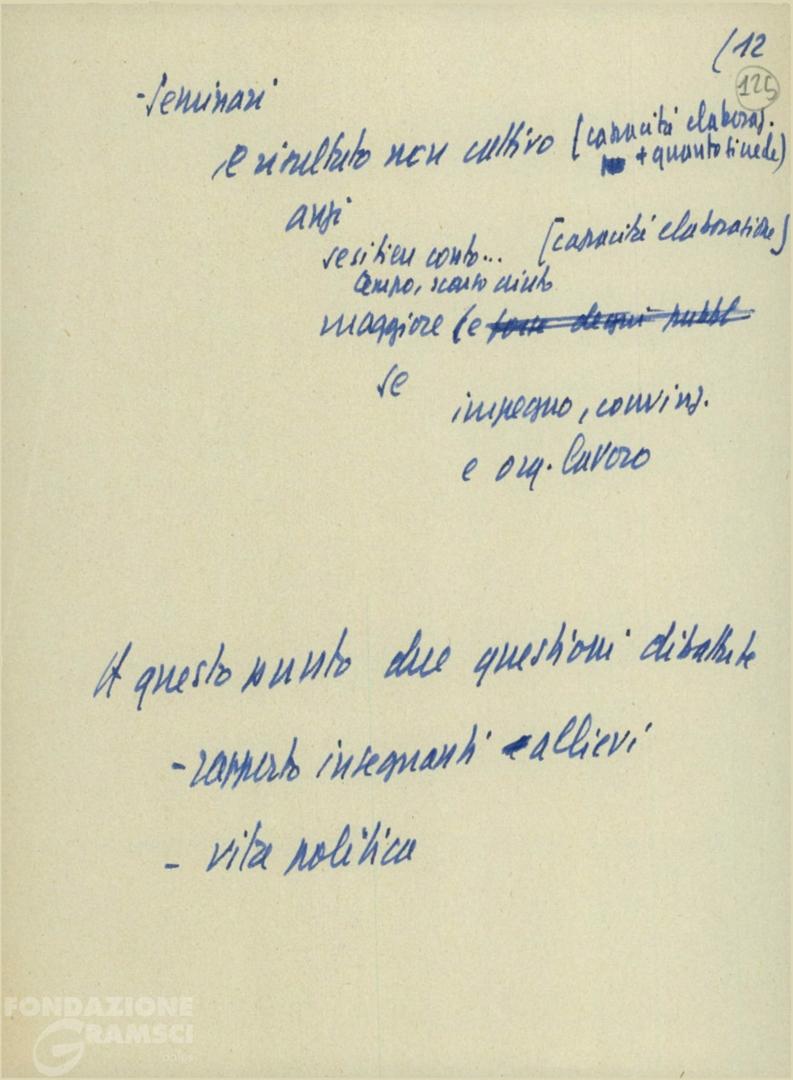 (12
125
- Seminari
e risultato non cattivo (capacità elaboraz.
+ quanto si vede)
anzi
se si tien conto... (capacità elaborazione)
tempo,
maggiore (e forse degni pubbl
se
impegno, convinz.
e org. lavoro
A questo punto due questioni dibattute
- rapporto insegnanti - allievi
- vita politica
FONDAZIONE
GRAMSCI